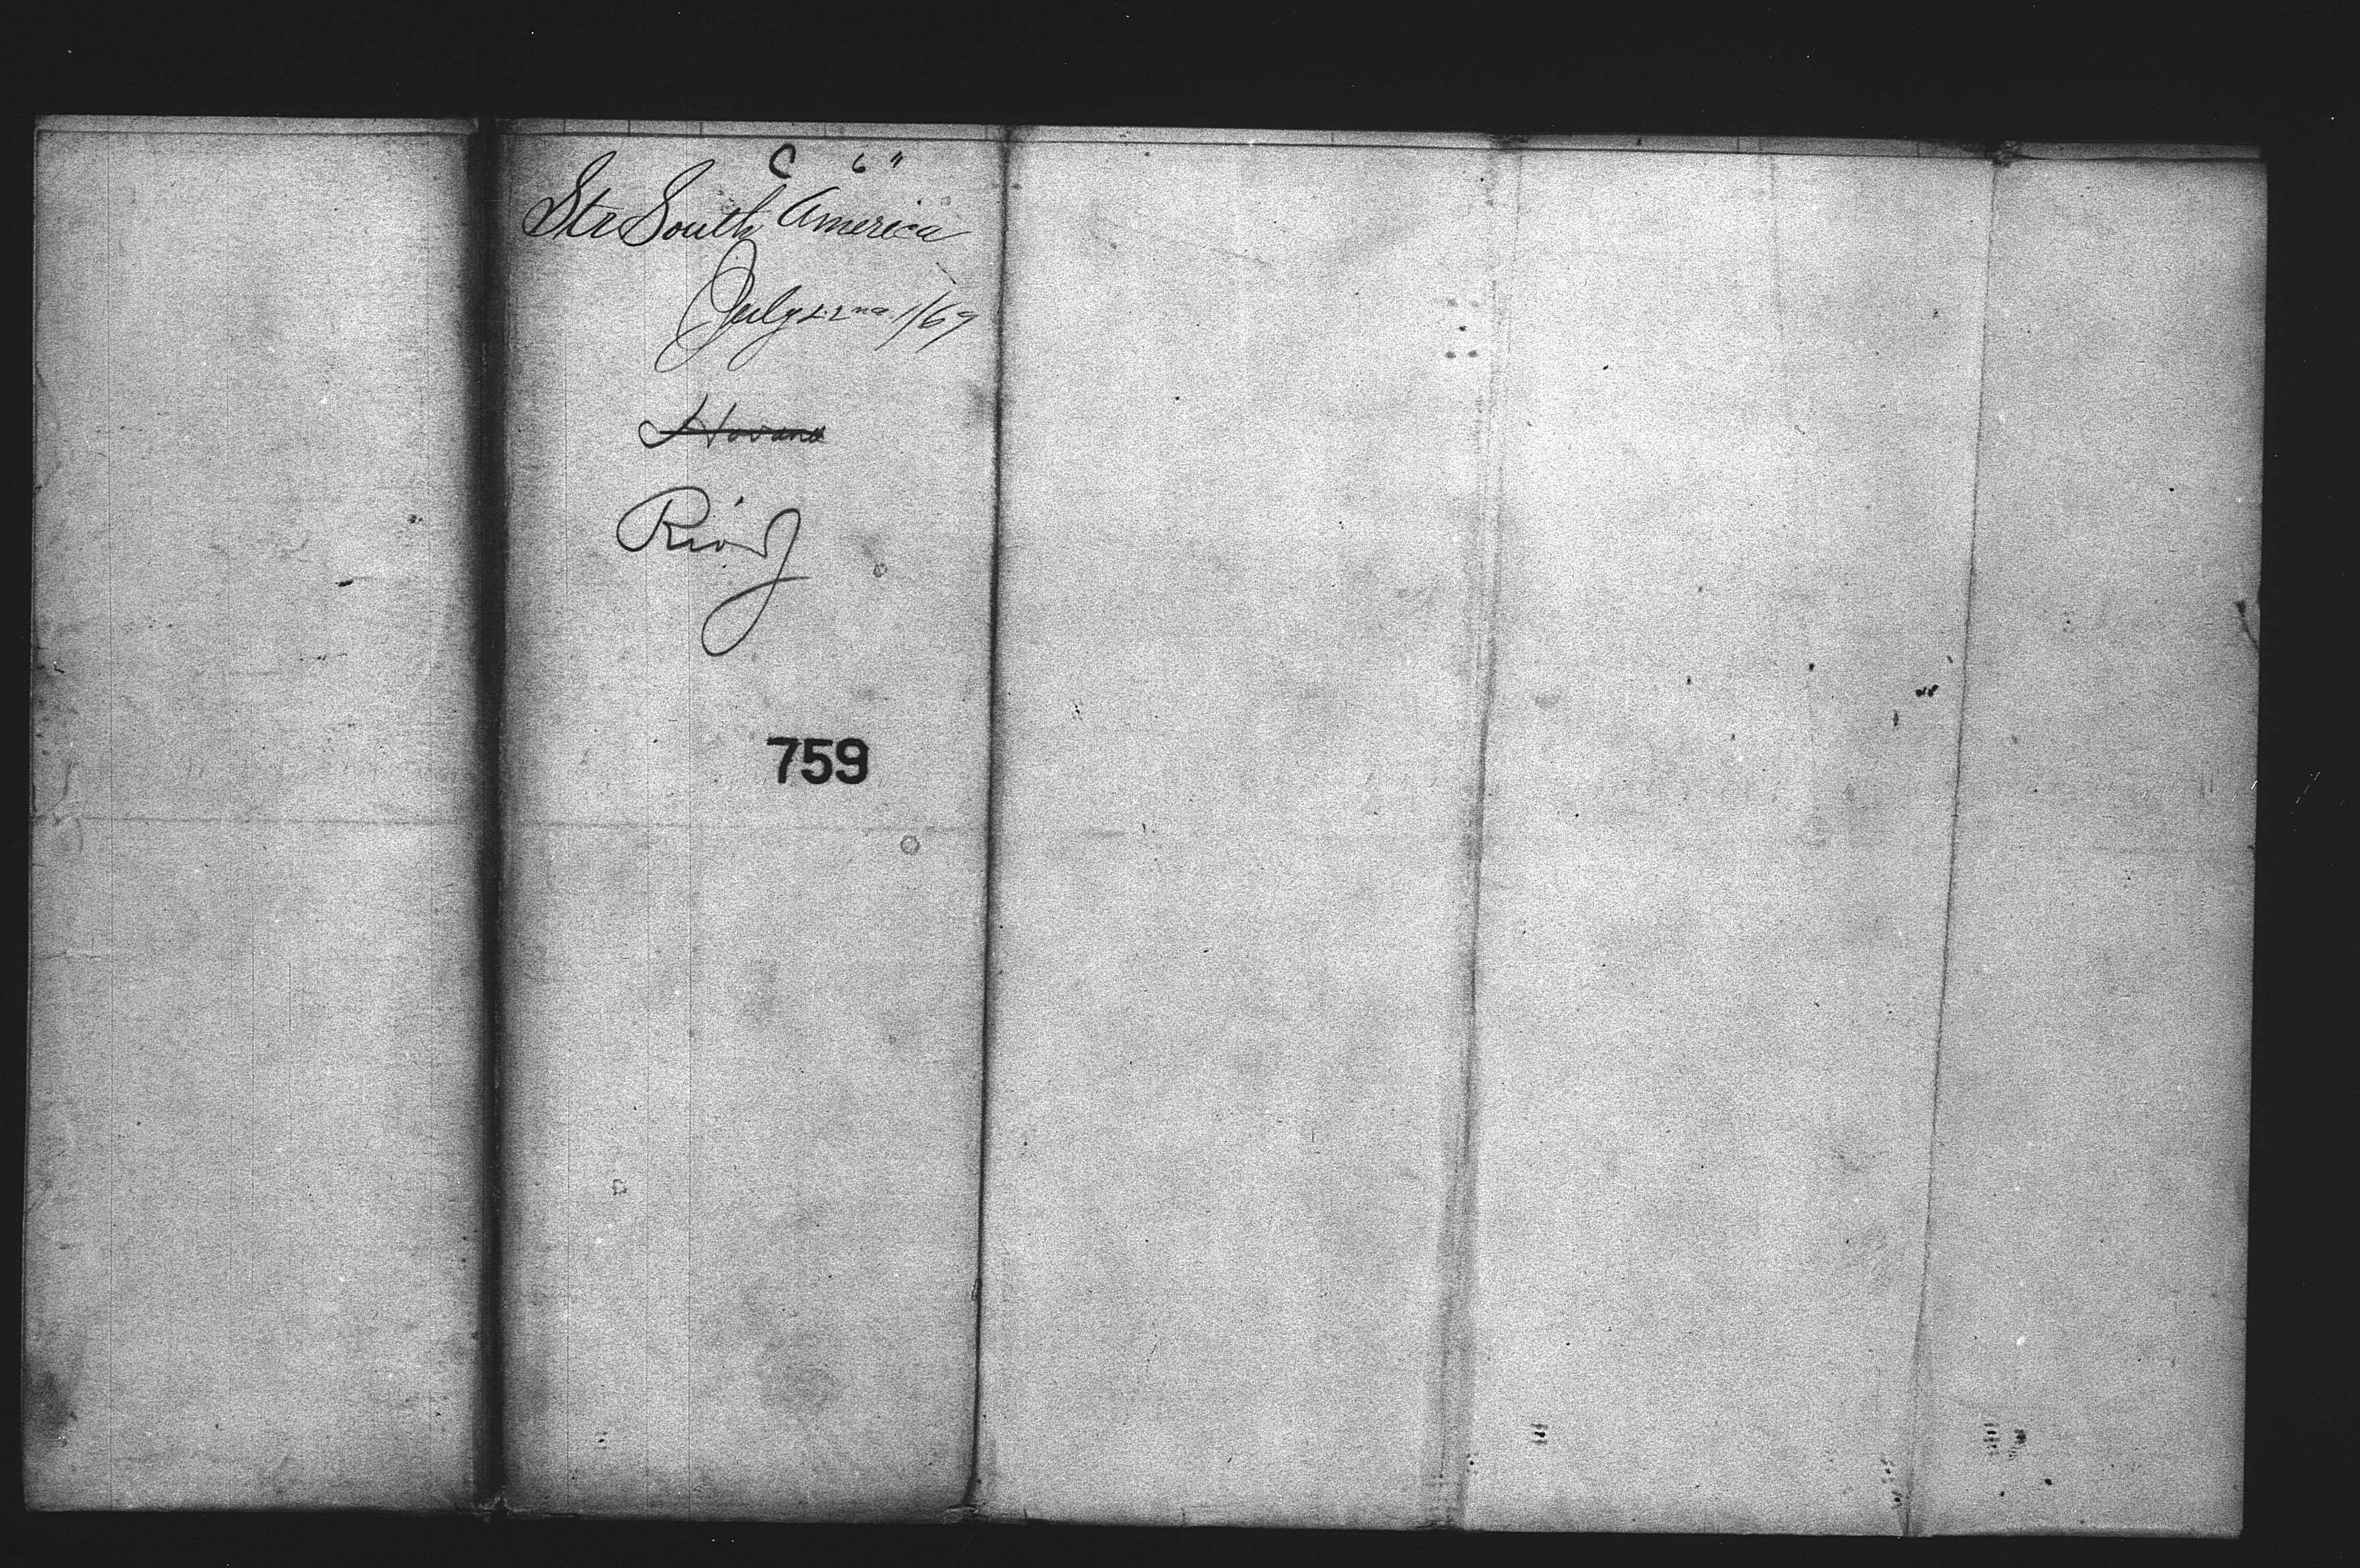 C 6 "
Str South America
July 22nd 1/69
Havana
Rio J
759